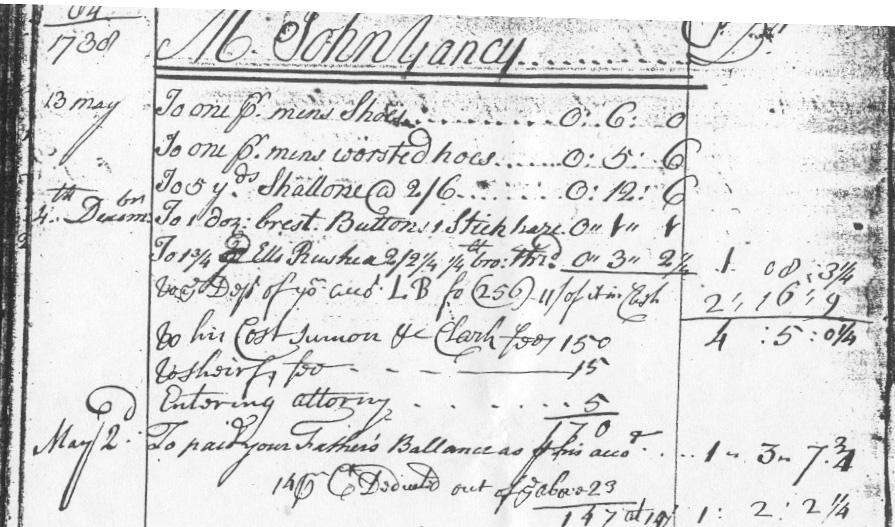 1738 Mr. John Yancy
13 may To one pr. mens Shoes 0: 6: 0
To one pr. mens worsted hoes 0: 5: 6
To 5 yds Shallone @ 2/6 0: 12: 6
4th Decembr To 1 doz: brest Buttons 1 Stick hare 0" 1" 1
To 1 3/4 Ells Rushea 2/2 1/4 1/4 tt bro: thrd. 0" 3" 2 1/4 1 08: 3 1/4
To ye of ye accot L B fo (256) of it in Cash 2: 16: 9
4: 5: 0 1/4
To his Cost sumon &c Clark fees 150
To sheirf fee 15
Entering attorny 5
170
May 2d. To paid your Father's Ballance as p his accot 1" 3" 7 3/4
14 p Ct Deducted out of ye above 23
147 at 14/ 1: 2: 2 1/4